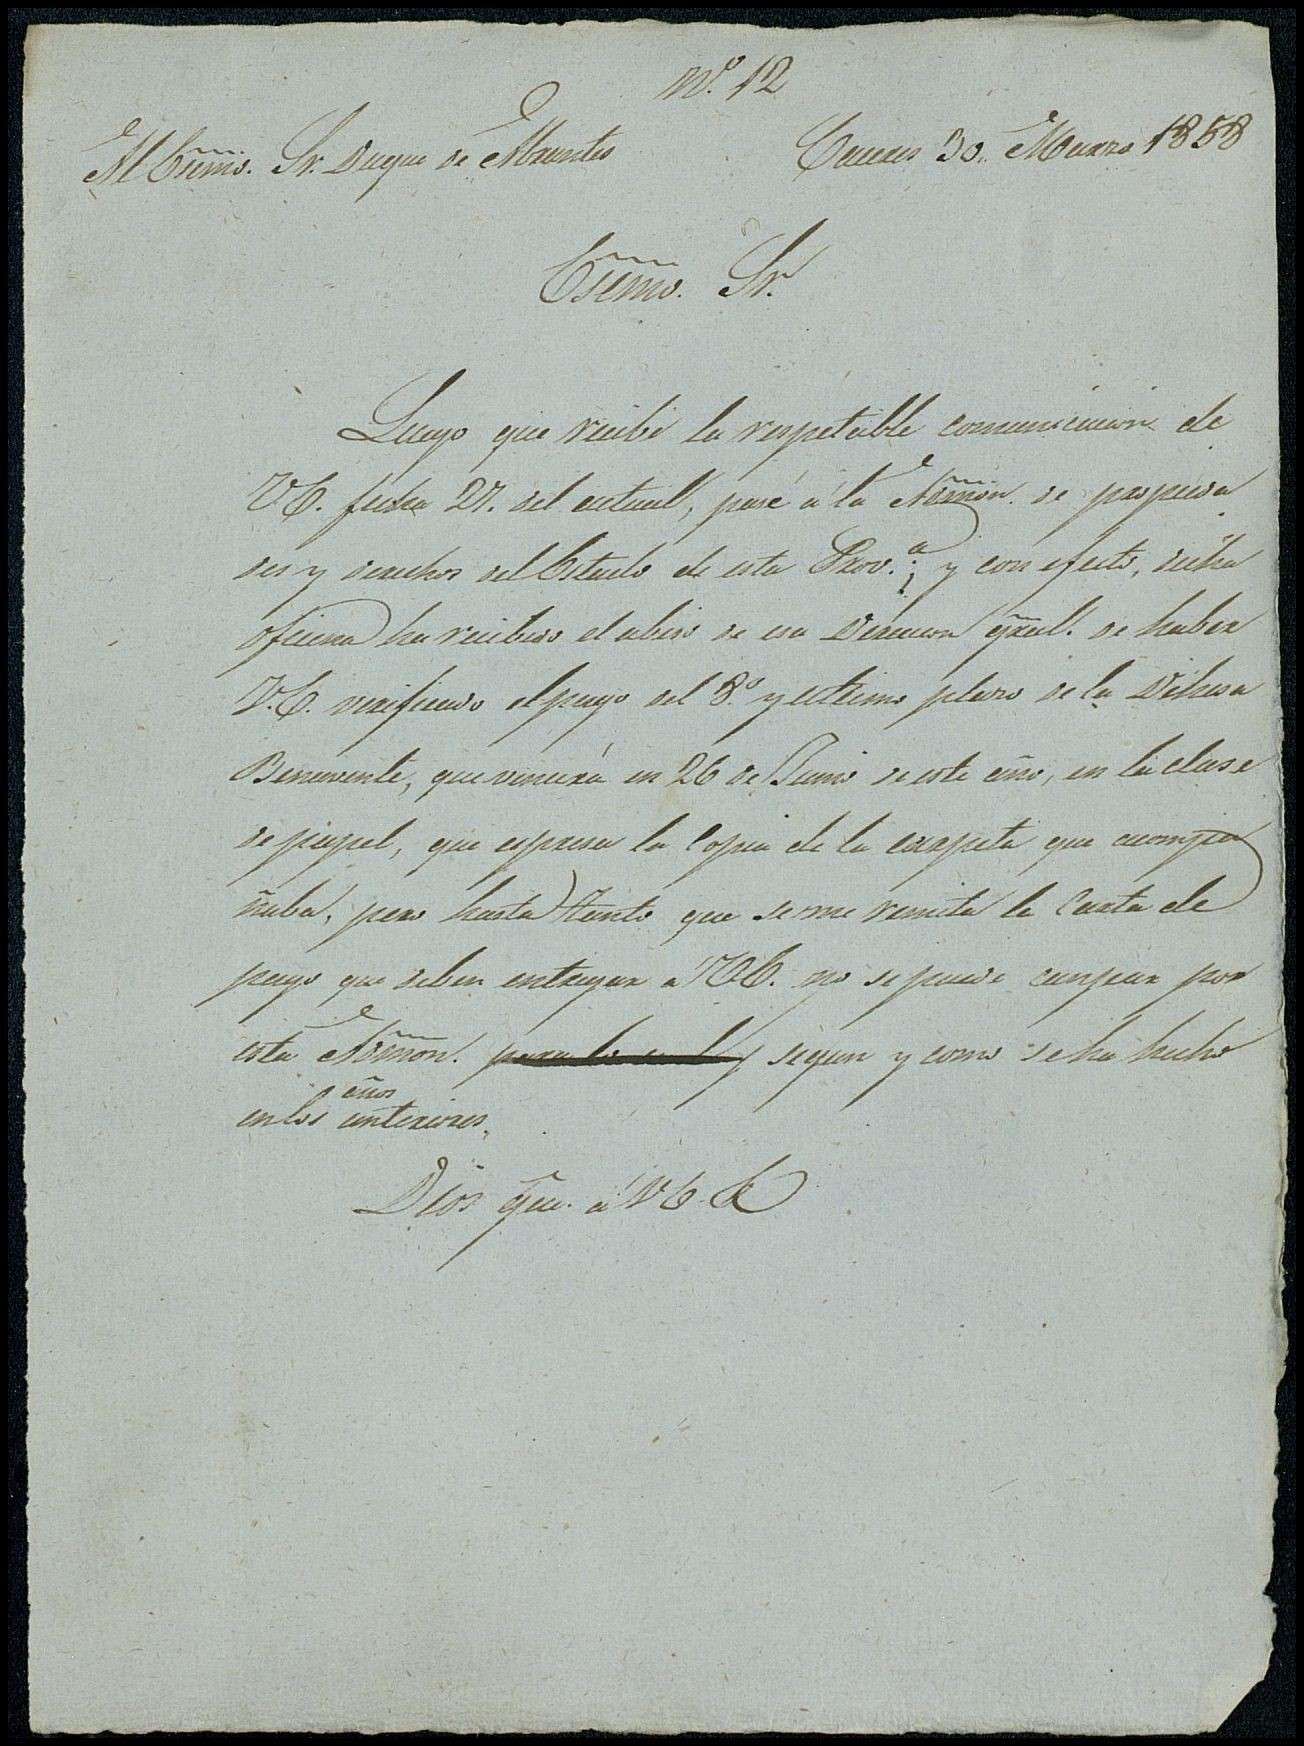 N.º 12
Al Esmo. Sr. Duque de Abrantes Caceres 30. Marzo 1858
Esemo. Sr.
Luego que recibí la respetable comunicacion de
V.E. fecha 27. del actual, pasé á la Admon. de propieda
des y derechos del Estado de esta Prov.ª; y con efecto, dicha
oficina ha recibido el abiso de esa Direccion gral. de haber
V.E. verificado el pago del 8.º y ultimo plazo de la Dehesa
Benavente, que vencerá en 26 de Junio de este año, en la clase
de papel, que espresa la Copia de la carpeta que acompa
ñaba, pero hasta tanto que se me remita la Carta de
pago que deben entregar á V.E. no se puede canjear por
esta Admon. segun y como se ha hecho
en los años anteriores.
Dios gue. á V.E. &